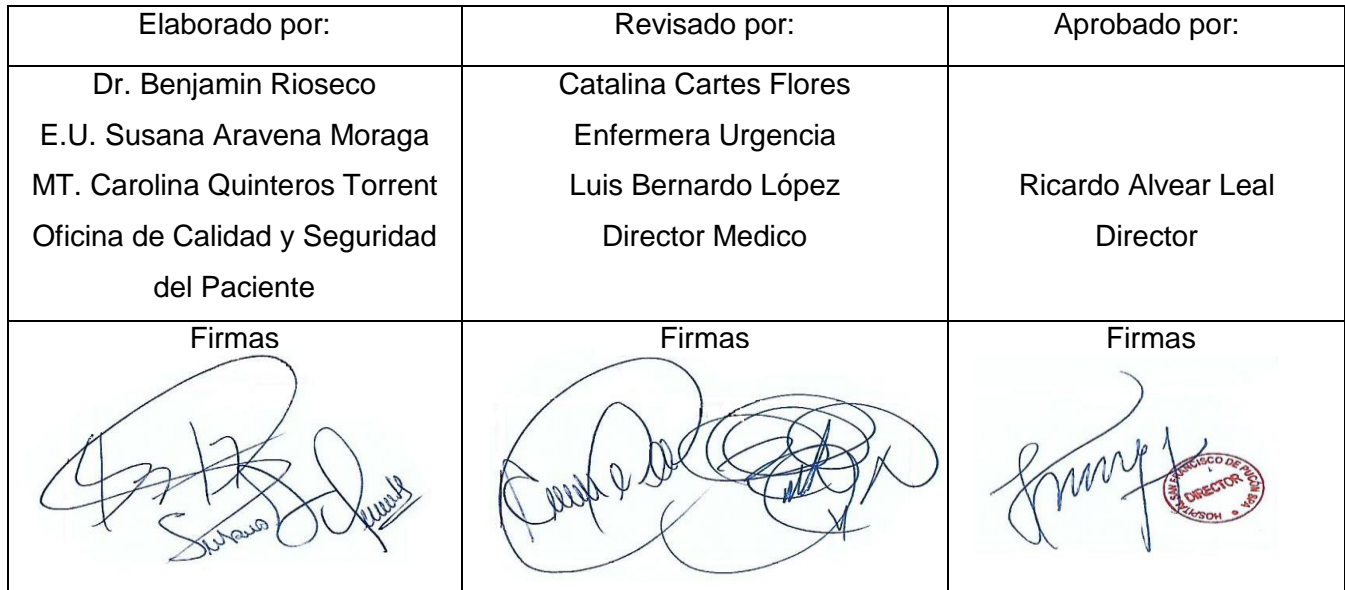 Elaborado por:
Revisado por:
Aprobado por:
Dr. Benjamin Rioseco
E.U. Susana Aravena Moraga
MT. Carolina Quinteros Torrent
Oficina de Calidad y Seguridad
del Paciente
Catalina Cartes Flores
Enfermera Urgencia
Luis Bernardo López
Director Medico
Ricardo Alvear Leal
Director
Firmas
Firmas
Firmas
Susana
HOSPITAL SAN FRANCISCO DE PUCÓN SPA
DIRECTOR